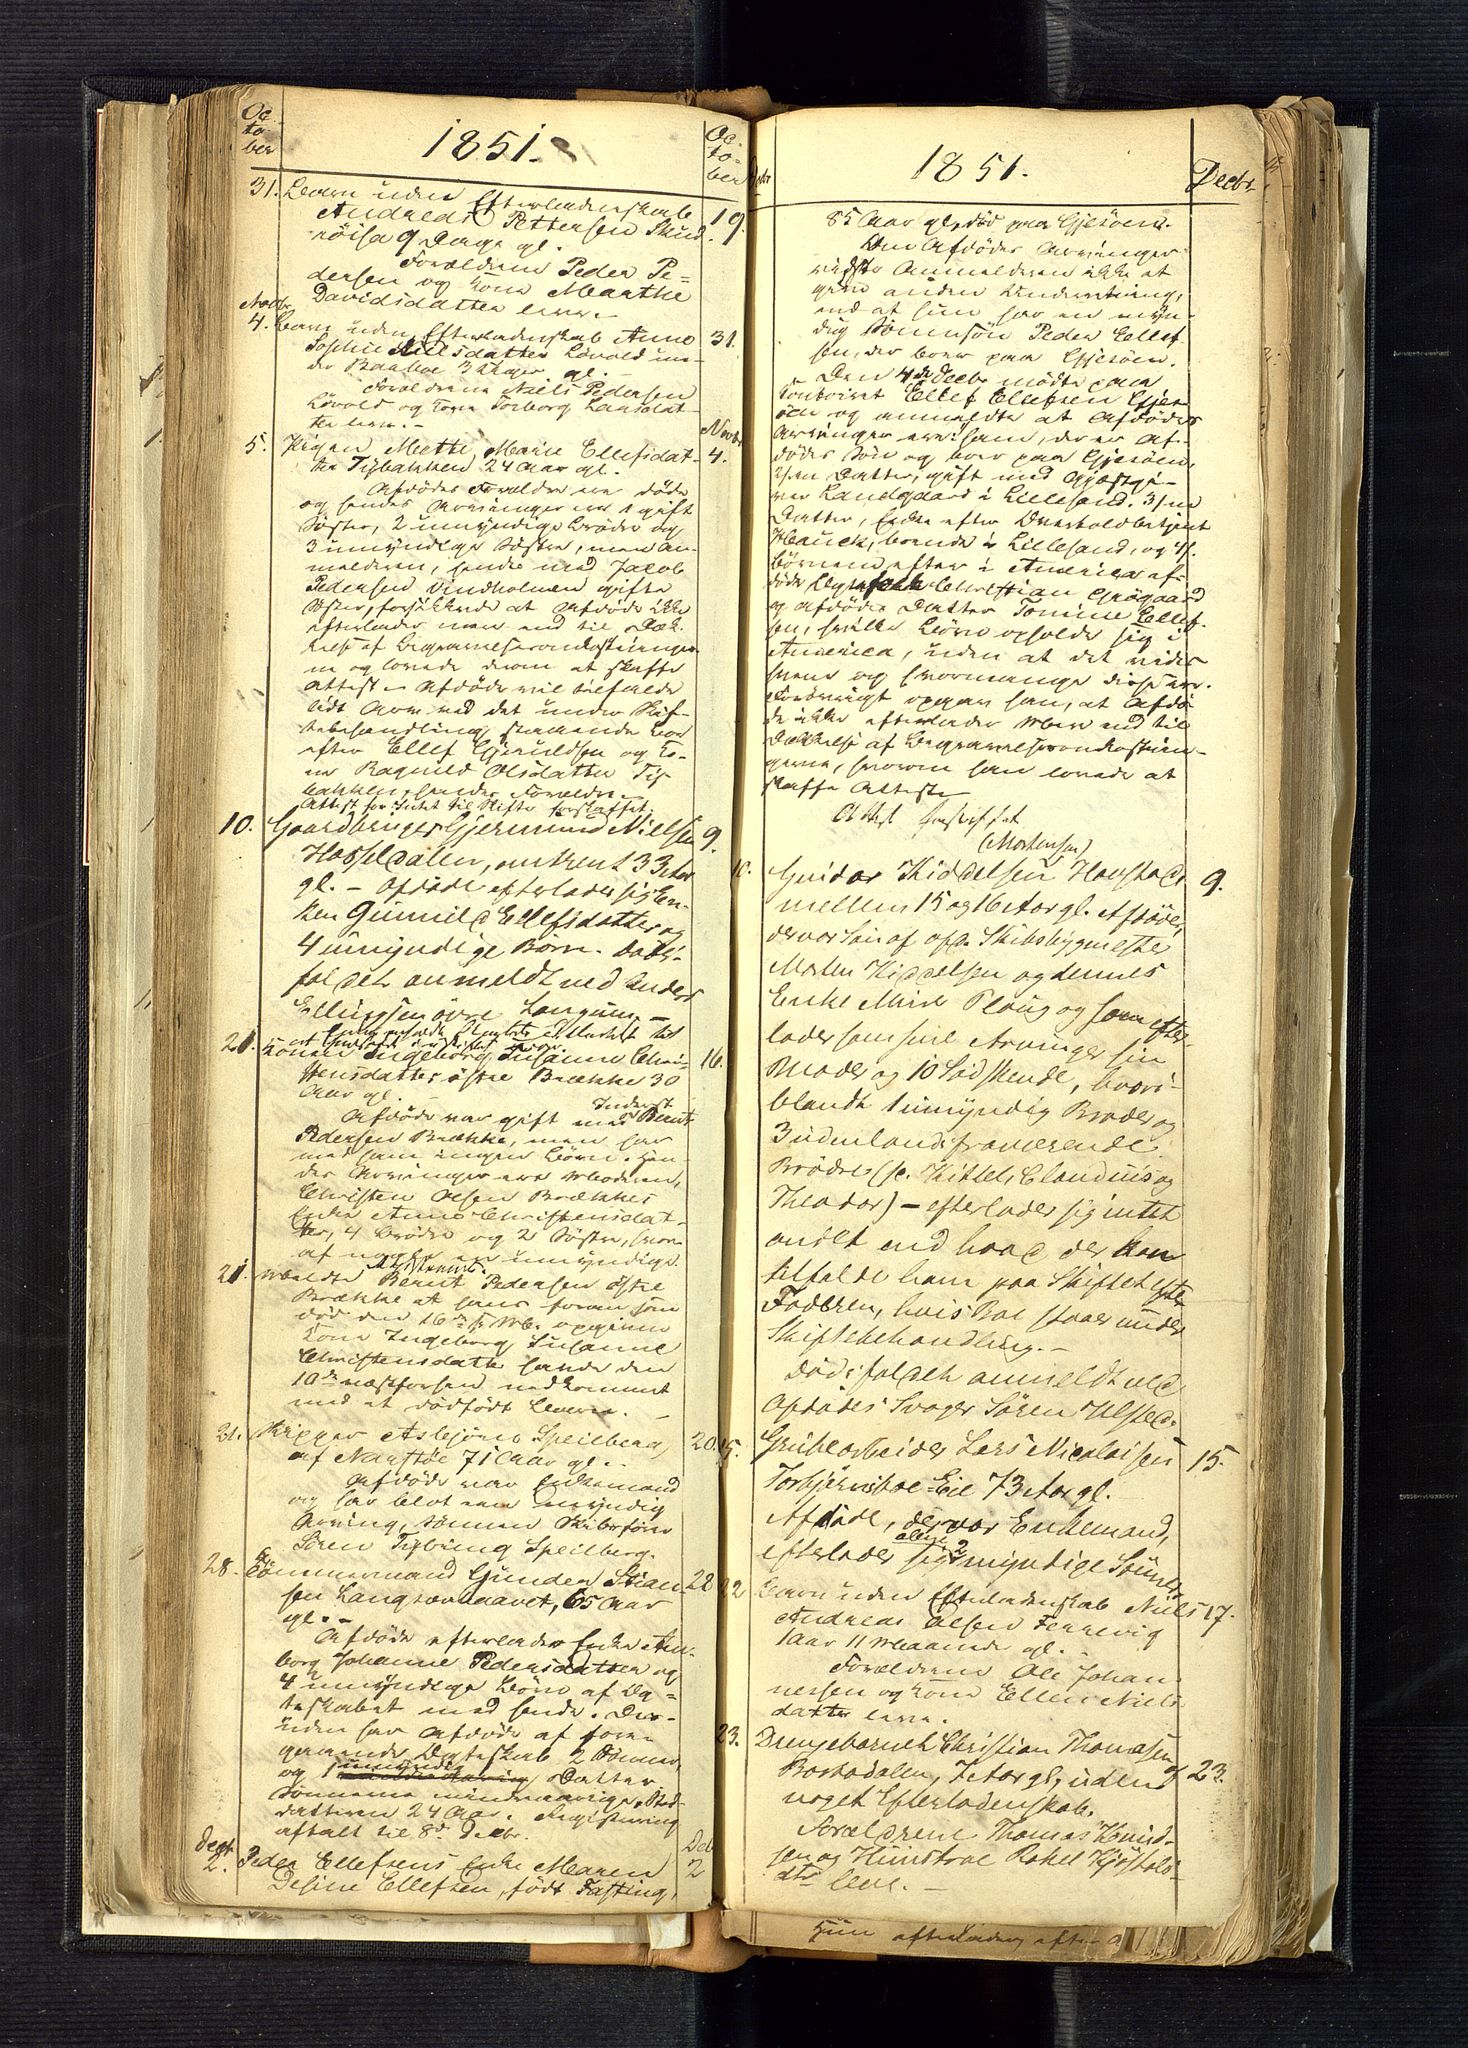 Oc-
to-
ber
1851.
Oc-
to-
ber
31. Barn uden Efterladenskab
Andreas Pettersen Skud
røisa 9 Dage gl.
19.
Forældrene Peder Pe-
dersen og Kone Marthe
Davidsdatter leve.
Novbr
4. Barn uden Efterladenskab Anne
31.
Sophie Nielsdatter Løvold un-
der Baaboe 3 Uger gl.
Forældrene Niels Pedersen
Løvold og Kone Torborg Larsdat-
ter leve.
Novbr
5. Pigen Mette Marie Ellefsdat-
4.
ter Tybakken 24 Aar gl.
Afdødes Forældre ere døde
og hendes Arvinger ere 1 gift
Søster, 2 umyndige Brødre og
3 umyndige Søstre, men An-
melderen, hendes med Jacob
Pedersen Vindholmen gifte
Søster, forsikkrede at Afdøde ikke
efterlader mere end til Dæk-
kelse af Begravelsesomkostninger-
ne og lovede derom at skaffe
Attest. Afdøde vil tilfalde
lidt Arv ved det under Skif-
tebehandling staaende Boe
efter Ellef Gjeruldsen og Ko-
ne Ragnild Olsdatter Ty-
bakken, hendes Forældre.
Attest for Intet til Skifte forskaffet.
10. Gaardbruger Gjermund Nielsen
9.
Hasseldalen, omtrent 33 Aar
gl. - Afdøde efterlader sig En-
ken Gunnild Ellefsdatter og
4 umyndige Børn. Døds-
faldet anmeldt ved Anders
Ellingsen øvre Langum
21. Konen Ingeborg Susanne Chri-
16.
stensdatter østre Brække 30
Aar gl.
Inderst
Afdøde var gift med Bernt
Pedersen Brække, men har
med ham ingen Børn. Hen-
des Arvinger ere Moderen,
Christen Olsen Brækkes
Enke Anne Christensdat-
ter, 4 Brødre og 2 Søstre, hvor-
af nogle ere umyndige.
21. meldte Bernt Pedersen østre
Brække at hans foran som
død den 16de ds. Mts. opgivne
Kone Ingeborg Susanne
Christensdatter havde den
10de næstforhen nedkommet
med et dødfødt Barn.
21. Skipper Asbjørn Speilberg
20.
af Narestøe 71 Aar gl.
Afdøde var Enkemand
og har blot een myndig
Arving, Sønnen Skibsfører
Søren Tybring Speilberg.
28. Tømmermand Gunder Stian-
22
sen Langsævaavet, 65 Aar
gl.
Afdøde efterlader Enke An-
borg Johanne Pedersdatter og
4 umyndige Børn af Æg-
teskabet med hende. Des-
uden har Afdøde af fore-
gaaende Ægteskab 2 Sønner
og 1 umyndig Datter.
Sønnerne mindreaarige,
Datteren 24 Aar. Registrering
aftalt til 8de Decbr.
Decbr
2. Peder Ellefsens Enke Maren
Dec
2
Desine Ellefsen, født Fasting,
1851.
Decbr.
85 Aar gl. død paa Gjesøen.
Den Afdødes Arvinger
vidste Anmelderen ikke at
give anden Underretning,
end at hun har en myn-
dig Sønnesøn Peder Ellef-
sen, der boer paa Gjesøen.
Den 4de Decbr mødte paa
Contoiret Ellef Ellefsen Gjes-
øen og anmeldte at Afdødes
Arvinger ere: ham, der er Af-
dødes Søn og boer paa Gjesøen,
2/ en Datter, gift med Gjæstgi-
ver Landgaard i Lillesand. 3/ en
Datter, Enke efter Overtoldbetjent
Hauck, boende i Lillesand, og 4/
Børnene efter i America af-
døde Christian Grøgaard
og afdødes Datter Tomine Ellef-
sen, hvilke Børn opholde sig i
America, uden at det vides
hvem og hvormange disse ere.
Forøvrigt opgav han, at Afdø-
de ikke efterlader mere end til
Dækkelse af Begravelsesomkostnin-
gerne, hvorom han lovede at
skaffe Attest.
Attest forskaffet
(Mortensen)
10. Gunder Kiddelsen Havstad,
9.
mellem 15 og 16 Aar gl. Afdøde,
der var Søn af afd. Skibsbygmester
Morten Kiddelsen og dennes
Enke Mine Ploug og som efter-
lader som sine Arvinger sin
Moder og 10 Sødskende, hvori-
blandt 1 umyndig Broder og
3 udenlands fraværende
Brødre (sc. Kittel, Claudius og
Theodor) - efterlader sig intet
andet end hvad der kan
tilfalde ham paa Skiftet efter
Faderen, hvis Boe staaer under
Skiftebehandling. -
Dødsfaldet anmeldt ved
Afdødes Svoger Søren Ulsted.
15. Grubearbeider Lars Nicolaisen
15.
Torbjørnsboe-Eie 73 Aar gl.
Afdøde, der var Enkemand,
efterlader sig alene 2 myndige Sønner.
22 Barn uden Efterladenskab Niels
17.
Andreas Olsen Fevig
1 Aar 11 Maaneder gl.
Forældrene Ole Johan-
nessen og Kone Ellen Niels-
datter leve.
23. Drengebarnet Christian Thomassen
23.
Barbodalen, 7 Aar gl, uden
noget Efterladenskab.
Forældrene Thomas Knud-
sen og Hustroe Rakel Kjøstols-
dtr leve. -
Hun efterlader efter